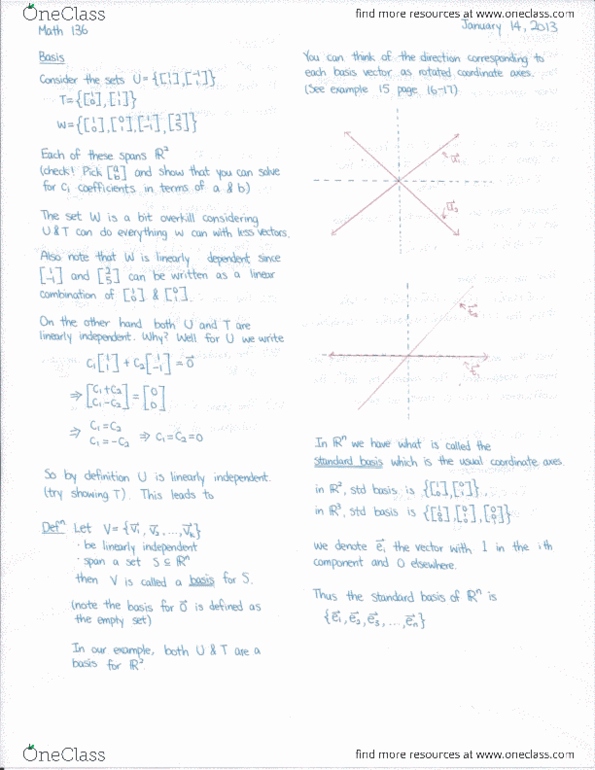 OneClass
find more resources at www.oneclass.com
Math 136
January 14, 2013
Basis
Consider the sets U = {[1 1], [1 -1]}
T = {[1 0], [1 1]}
W = {[1 0], [0 1], [1 -1], [3 5]}
Each of these spans ℝ²
(check! Pick [a b] and show that you can solve
for Ci coefficients in terms of a & b)
The set W is a bit overkill considering
U & T can do everything W can with less vectors.
Also note that W is linearly dependent since
[1 -1] and [3 5] can be written as a linear
combination of [1 0] & [0 1].
On the other hand both U and T are
linearly independent. Why? Well for U we write
C₁[1 1] + C₂[1 -1] = 0⃗
⇒ [C₁+C₂ C₁-C₂] = [0 0]
⇒ C₁ = C₂
C₁ = -C₂ ⇒ C₁ = C₂ = 0
So by definition U is linearly independent.
(try showing T). This leads to
Defⁿ Let V = {v⃗₁, v⃗₂, ..., v⃗ₖ}
· be linearly independent
· span a set S ⊆ ℝⁿ
then V is called a basis for S.
(note the basis for 0⃗ is defined as
the empty set)
In our example, both U & T are a
basis for ℝ².
You can think of the direction corresponding to
each basis vector as rotated coordinate axes.
(See example 15 page 16-17)
In ℝⁿ we have what is called the
standard basis which is the usual coordinate axes.
in ℝ², std basis is {[1 0], [0 1]}.
in ℝ³, std basis is {[1 0 0], [0 1 0], [0 0 1]}
we denote e⃗ᵢ the vector with 1 in the ith
component and 0 elsewhere.
Thus the standard basis of ℝⁿ is
{e⃗₁, e⃗₂, e⃗₃, ..., e⃗ₙ}
OneClass
find more resources at www.oneclass.com